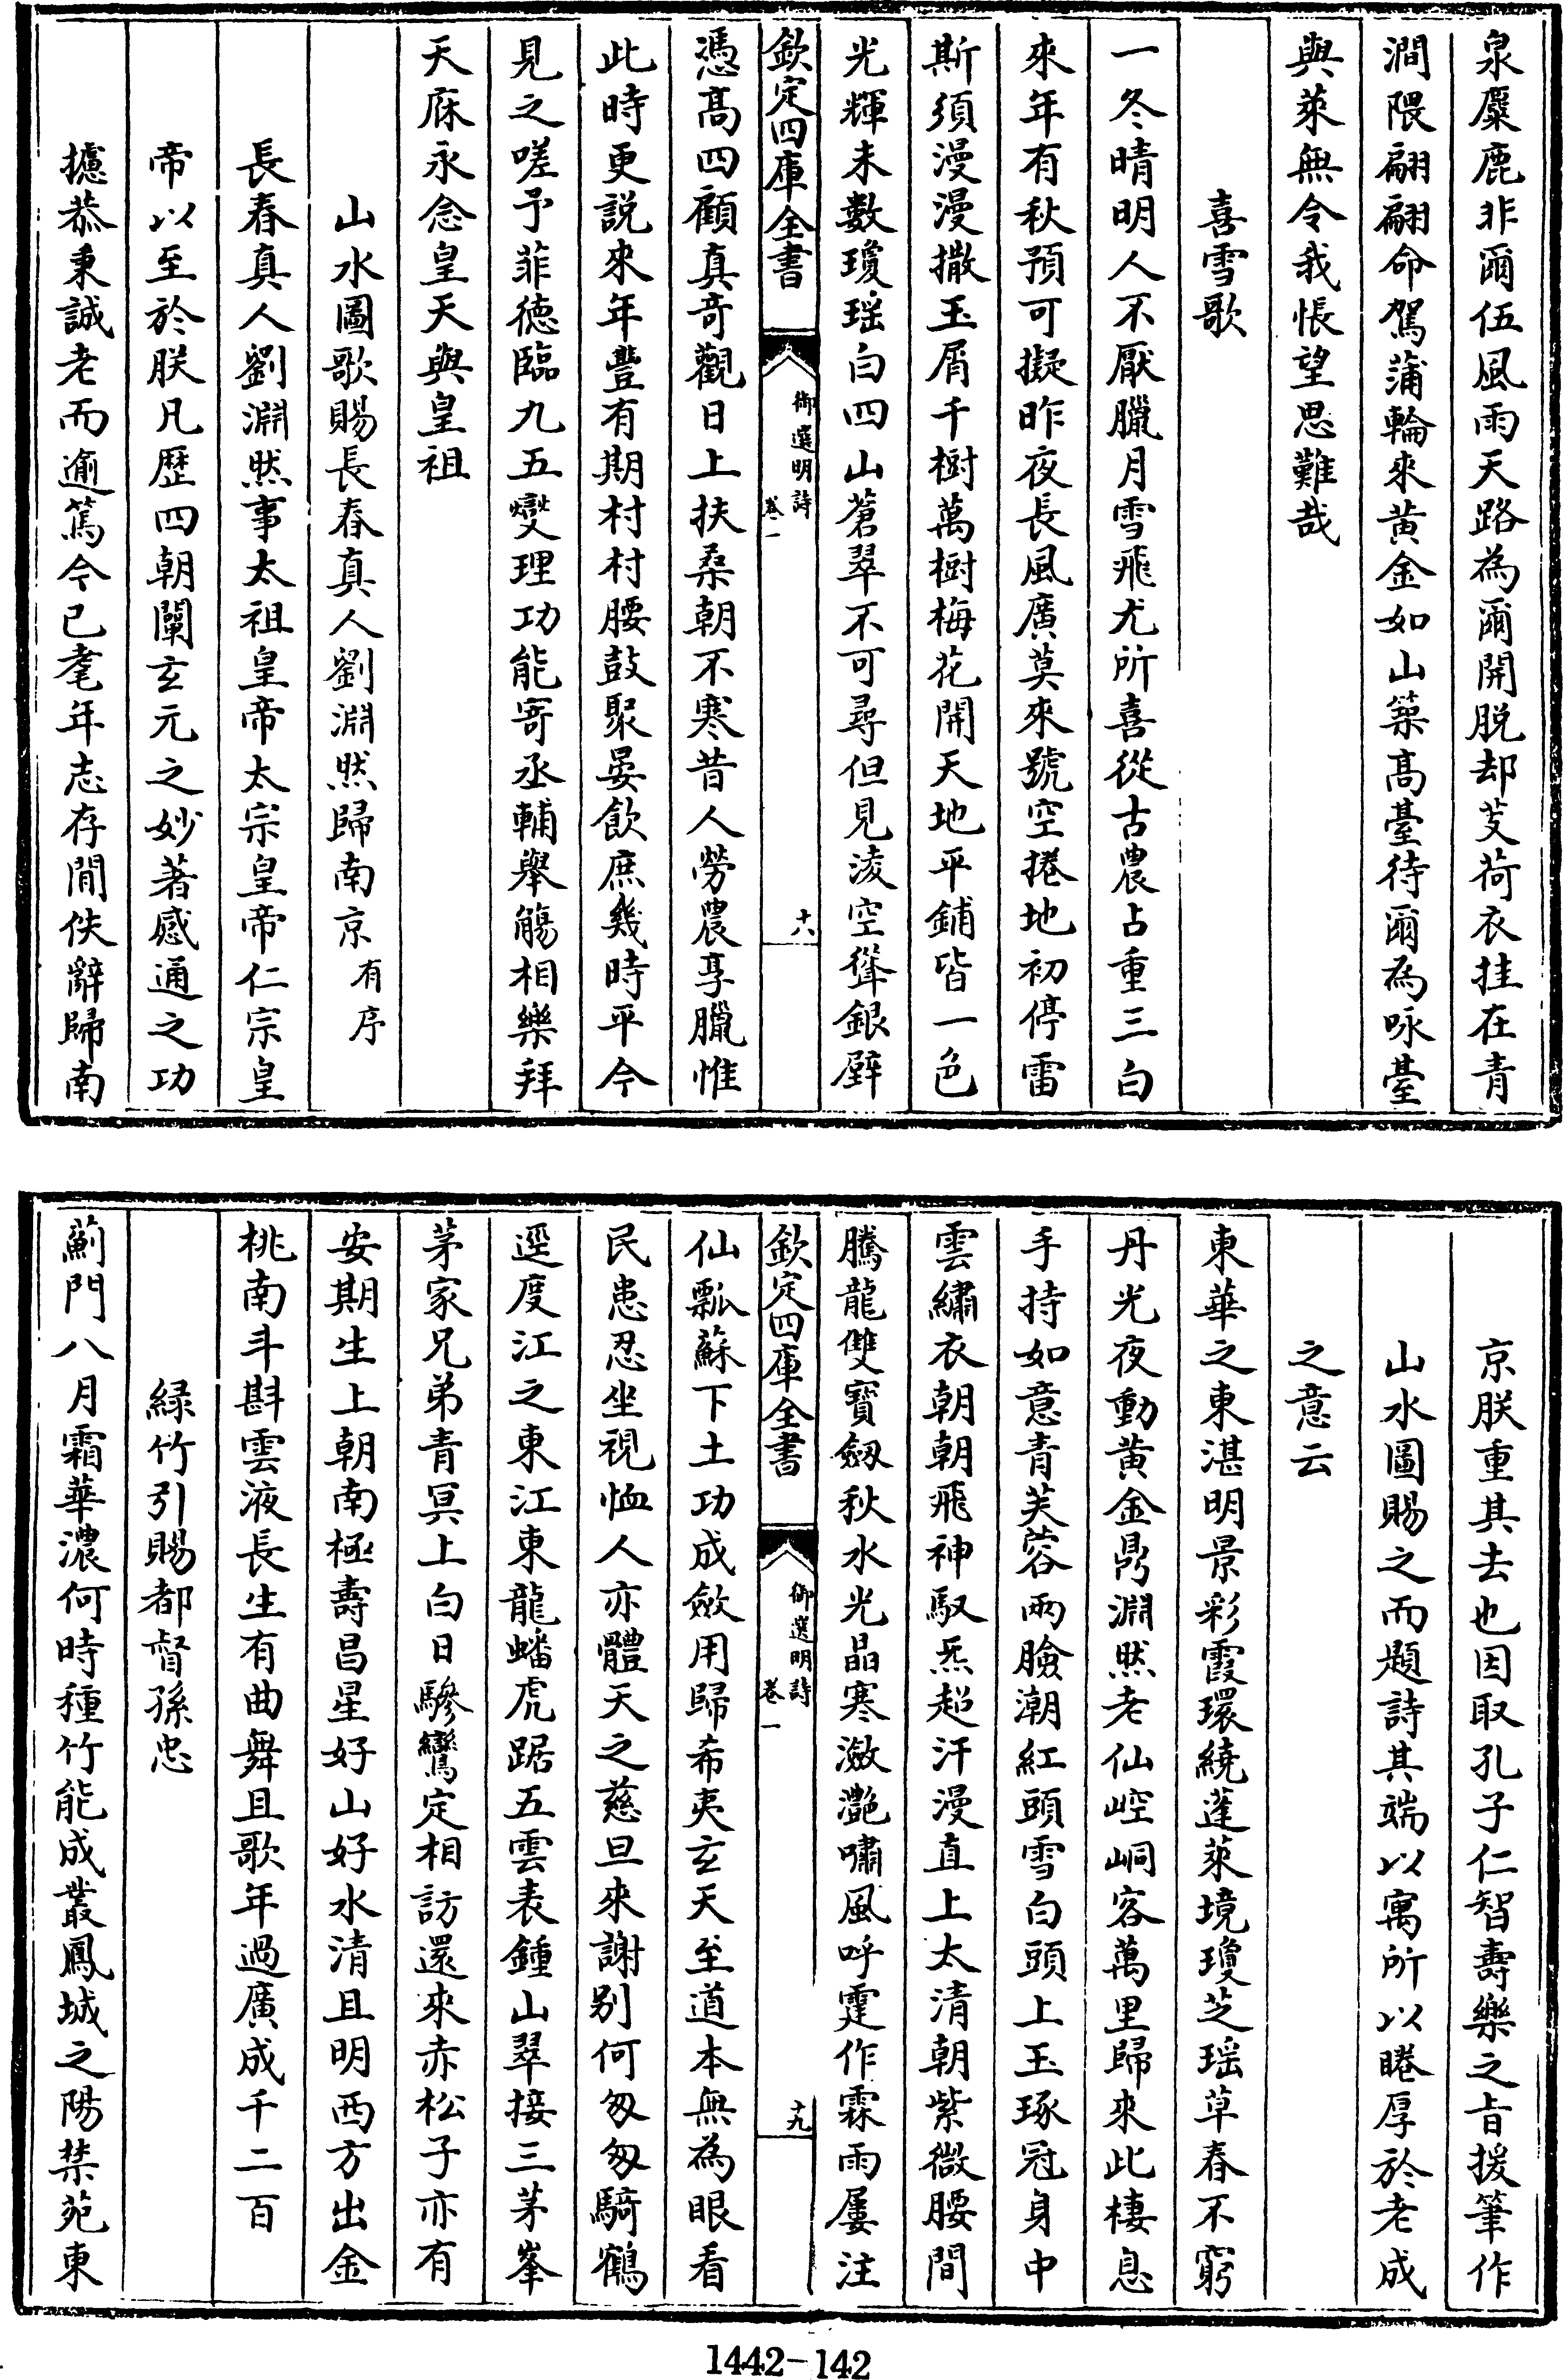 泉麋鹿非爾伍風雨天路為爾開脱却芰荷衣挂在青
澗隈翩翩命駕蒲輪來黄金如山築髙臺待爾為咏臺
與萊無令我悵望思難哉
喜雪歌
一冬晴明人不厭臘月雪飛尤所喜從古農占重三白
來年有秋預可擬昨夜長風廣莫來號空捲地初停雷
斯須漫漫撒玉屑千樹萬樹梅花開天地平鋪皆一色
光輝未數瓊瑶白四山蒼翠不可尋但見淩空聳銀壁
欽定四庫全書
御選明詩
卷一
十八
憑髙四顧真竒觀日上扶桑朝不寒昔人勞農享臘惟
此時更説來年豐有期村村腰鼓聚宴飲庶幾時平今
見之嗟予菲徳臨九五爕理功能寄丞輔舉觴相樂拜
天庥永念皇天與皇祖
山水圖歌賜長春真人劉淵然歸南京有序
長春真人劉淵然事太祖皇帝太宗皇帝仁宗皇
帝以至於朕凡歴四朝闡玄元之妙著感通之功
攄恭秉誠老而逾篤今已耄年志存閒佚辭歸南
京朕重其去也因取孔子仁智壽樂之旨援筆作
山水圖賜之而題詩其端以寓所以睠厚於老成
之意云
東華之東湛明景彩霞環繞蓬萊境瓊芝瑶草春不窮
丹光夜動黄金鼎淵然老仙崆峒客萬里歸來此棲息
手持如意青芙蓉兩臉潮紅頭雪白頭上玉琢冠身中
雲繡衣朝朝飛神馭炁超汗漫直上太清朝紫微腰間
騰龍雙寶劔秋水光晶寒瀲灔嘯風呼霆作霖雨屢注
欽定四庫全書
御選明詩
卷一
十九
仙瓢蘇下土功成斂用歸希夷玄天至道本無為眼看
民患忍坐視恤人亦體天之慈旦來謝别何匆匆騎鶴
逕度江之東江東龍蟠虎踞五雲表鍾山翠接三茅峯
茅家兄弟青冥上白日驂鸞定相訪還來赤松子亦有
安期生上朝南極壽昌星好山好水清且明西方出金
桃南斗斟雲液長生有曲舞且歌年過廣成千二百
緑竹引賜都督孫忠
薊門八月霜華濃何時種竹能成叢鳳城之陽禁苑東
1442-142